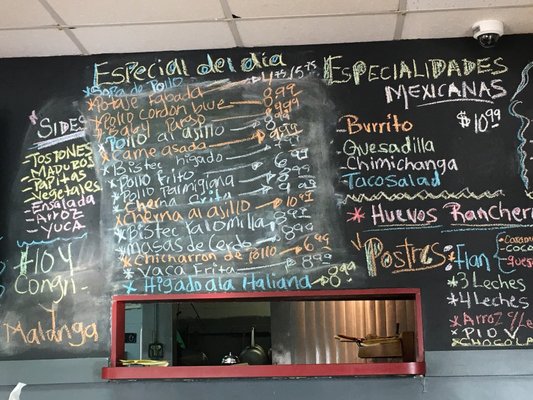 Especial del dia
Sopa de Pollo 4.75/5.75
Potaje
Pollo cordon blue 8.99
Pollo al ajillo
Carne asada
Bistec hígado
Pollo frito
Pollo Parmigiana
Cherna frita
Cherna al ajillo
Bistec Palomilla
Masas de Cerdo 8.99
Chicharron de Pollo
Vaca Frita 8.99
Higado ala Italiana 8.99
Sides
Tostones
Maduros
Papitas
Vegetales
Ensalada
Arroz
Yuca
Hoy
Congri
Malanga
Especialidades
Mexicanas
$10.99
Burrito
Quesadilla
Chimichanga
Taco Salad
Huevos Ranchero
Postres
Flan
Coco
queso
3 Leches
4 Leches
Arroz
Pio
Chocola